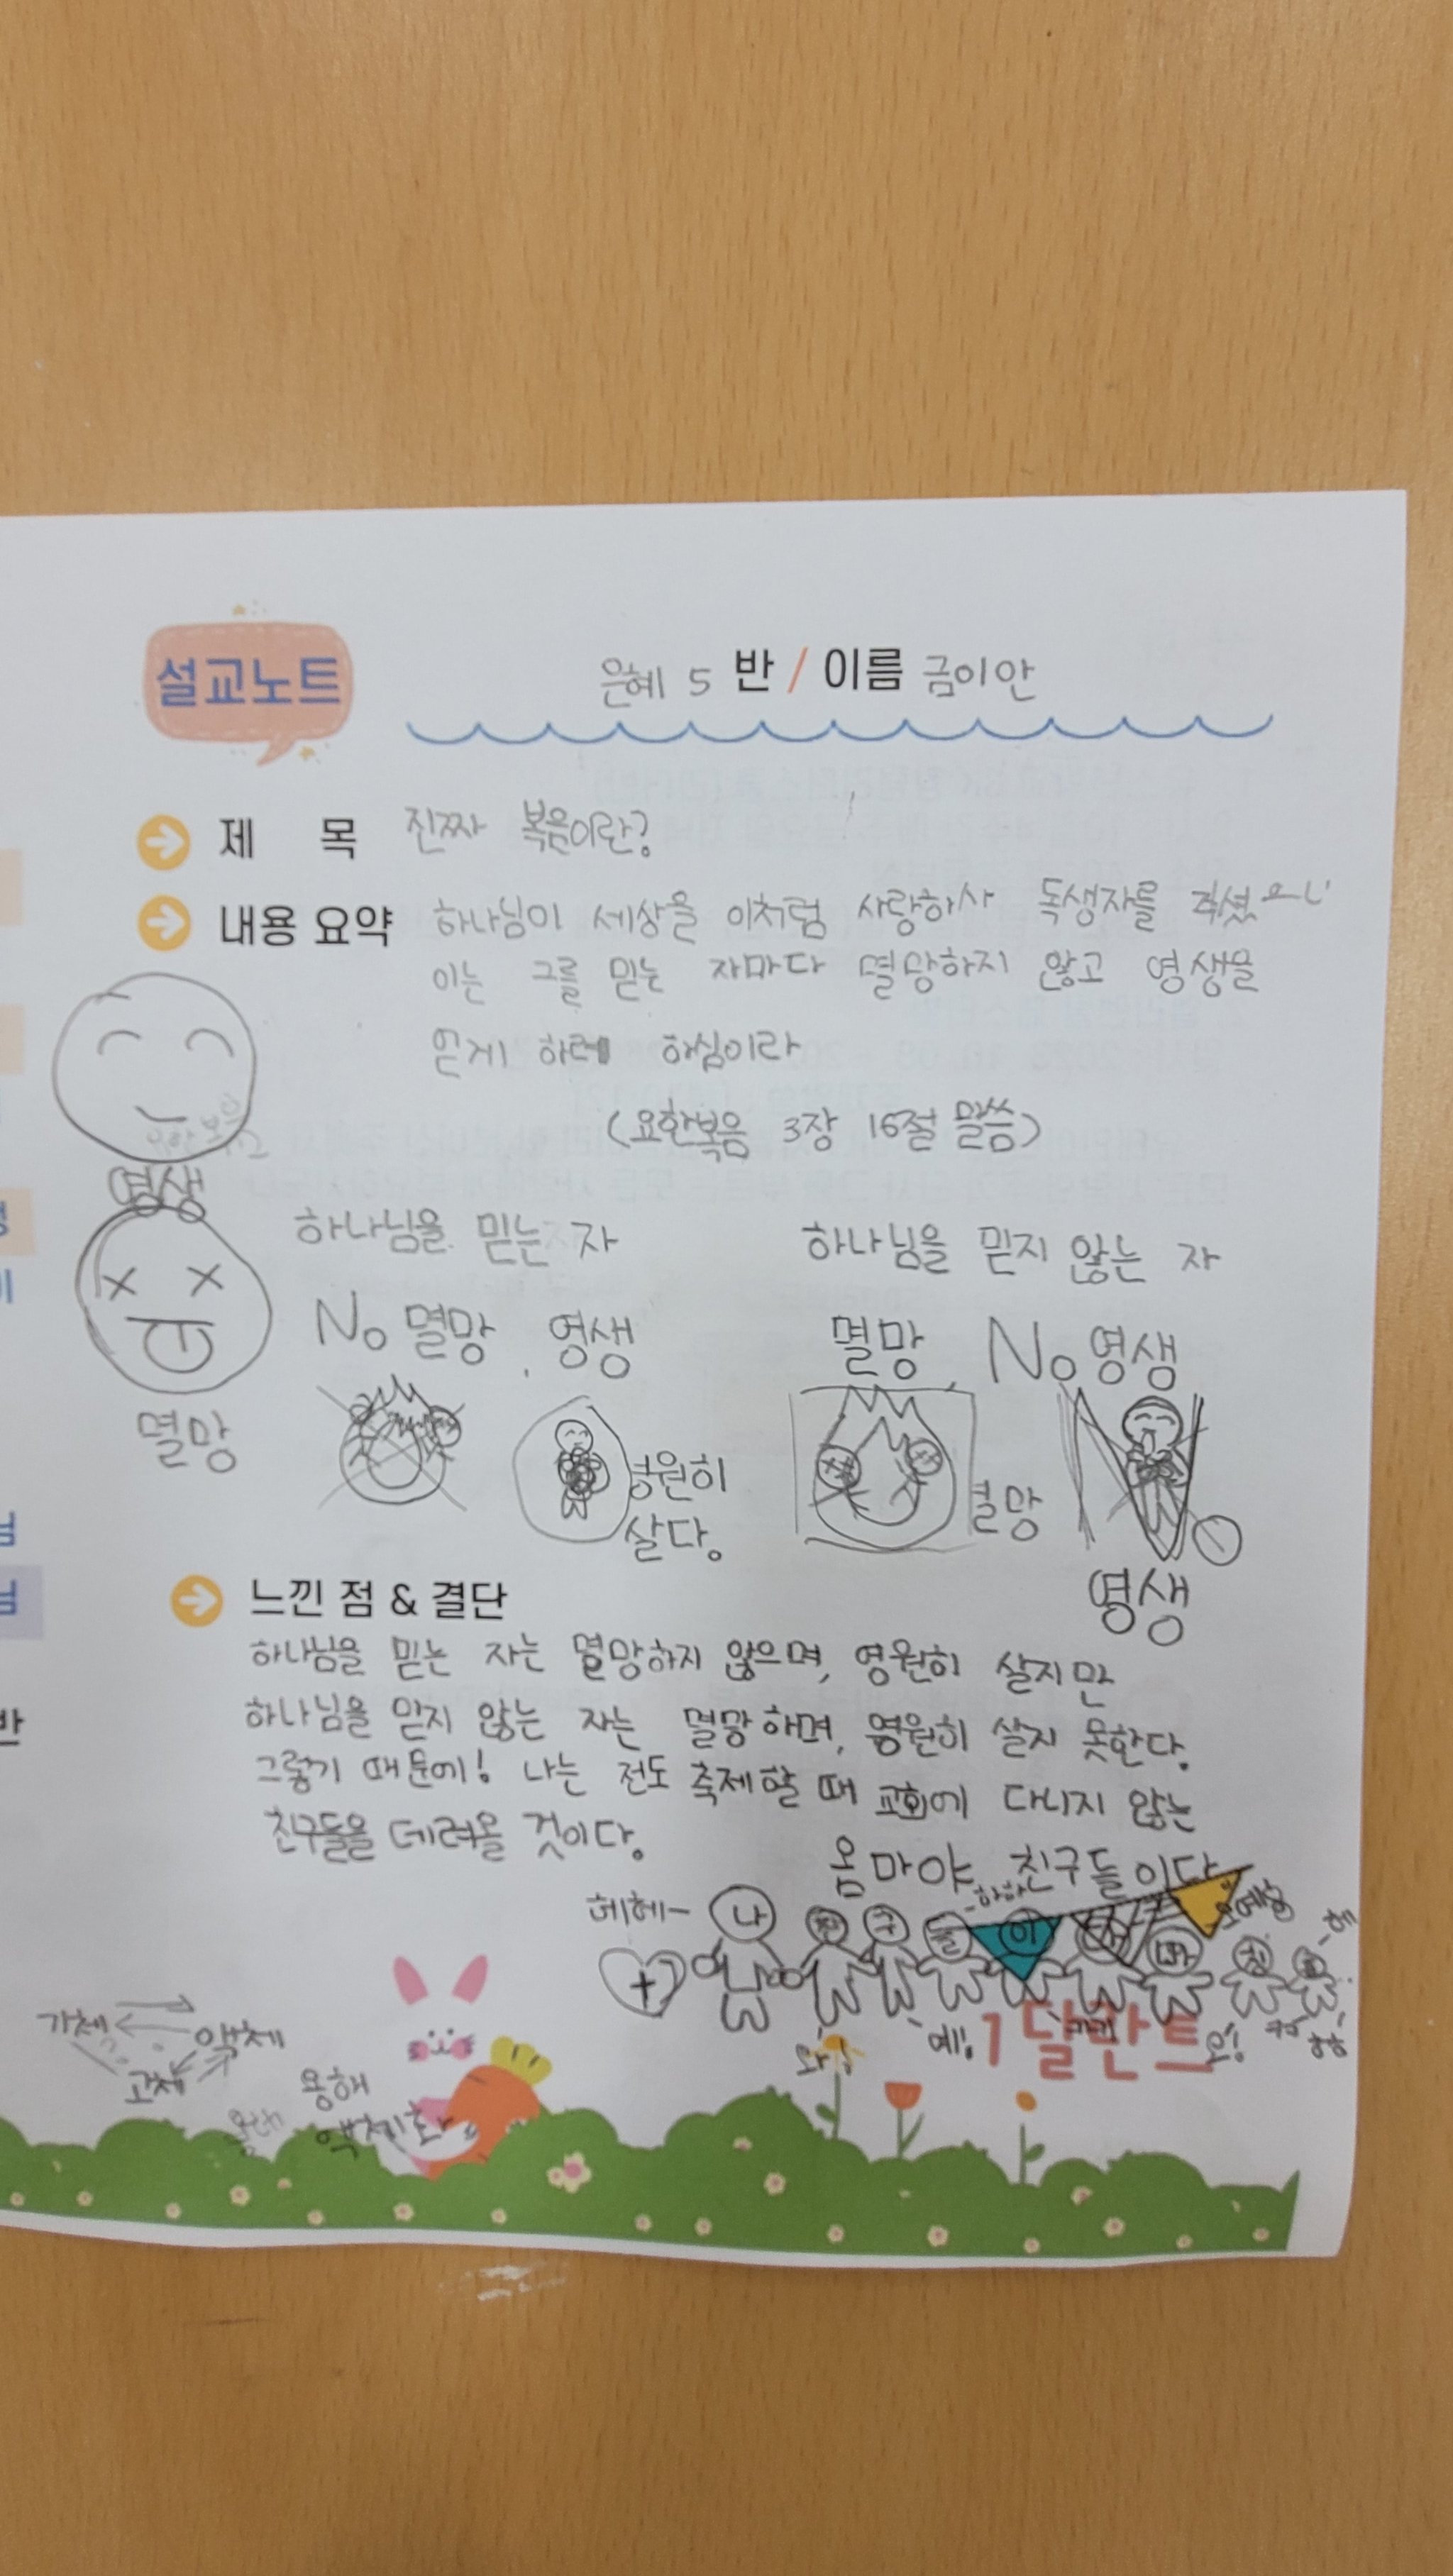 설교노트
은혜 5 반 / 이름 금이안
제 목 진짜 복음이란?
내용 요약 하나님이 세상을 이처럼 사랑하사 독생자를 주셨으니
이는 그를 믿는 자마다 멸망하지 않고 영생을
얻게 하려 하심이라
(요한복음 3장 16절 말씀)
영생
하나님을 믿는 자 하나님을 믿지 않는 자
No 멸망, 영생 멸망, No 영생
멸망
영원히
살다.
멸망
영생
느낀 점 & 결단
하나님을 믿는 자는 멸망하지 않으며, 영원히 살지만
하나님을 믿지 않는 자는 멸망하며, 영원히 살지 못한다.
그렇기 때문에! 나는 전도 축제할 때 교회에 다니지 않는
친구들을 데려올 것이다.
옴마야 친구들이다
헤헤- 나 친 구 들 이
하하
와! 예! 오!
1달란트
기체 액체
고체
용해
액체화
반